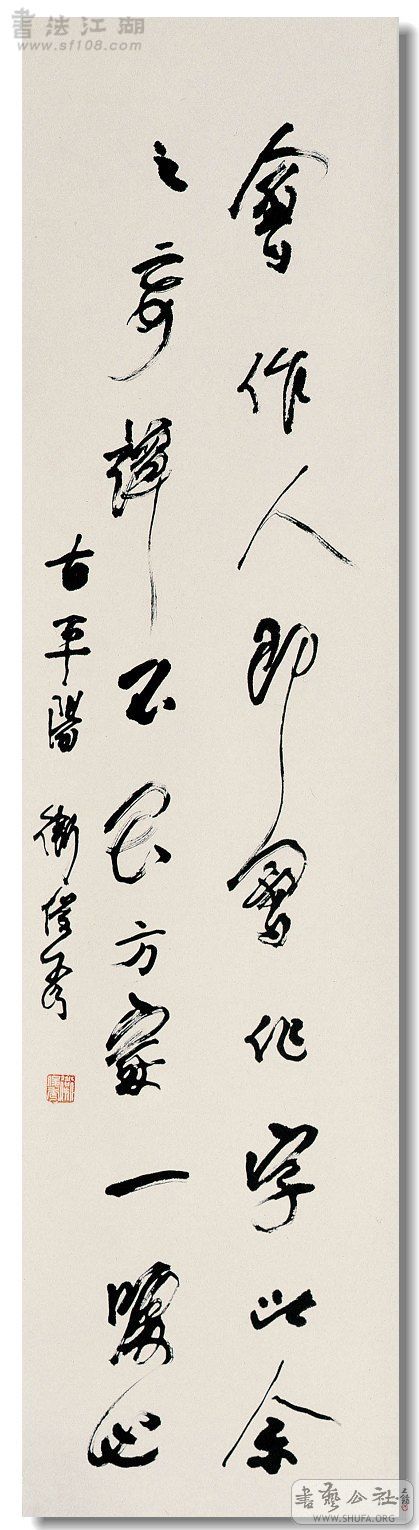 書法江湖
www.sf108.com
會作人即會作字此余
之妄譚不足方家一也
古平陽 衛俊秀
書藝公社
WWW.SHUFA.ORG